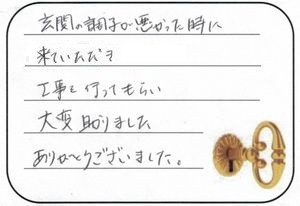 玄関の調子が悪かった時に
来ていただき
工事を行ってもらい
大変助りました
ありがとうございました。